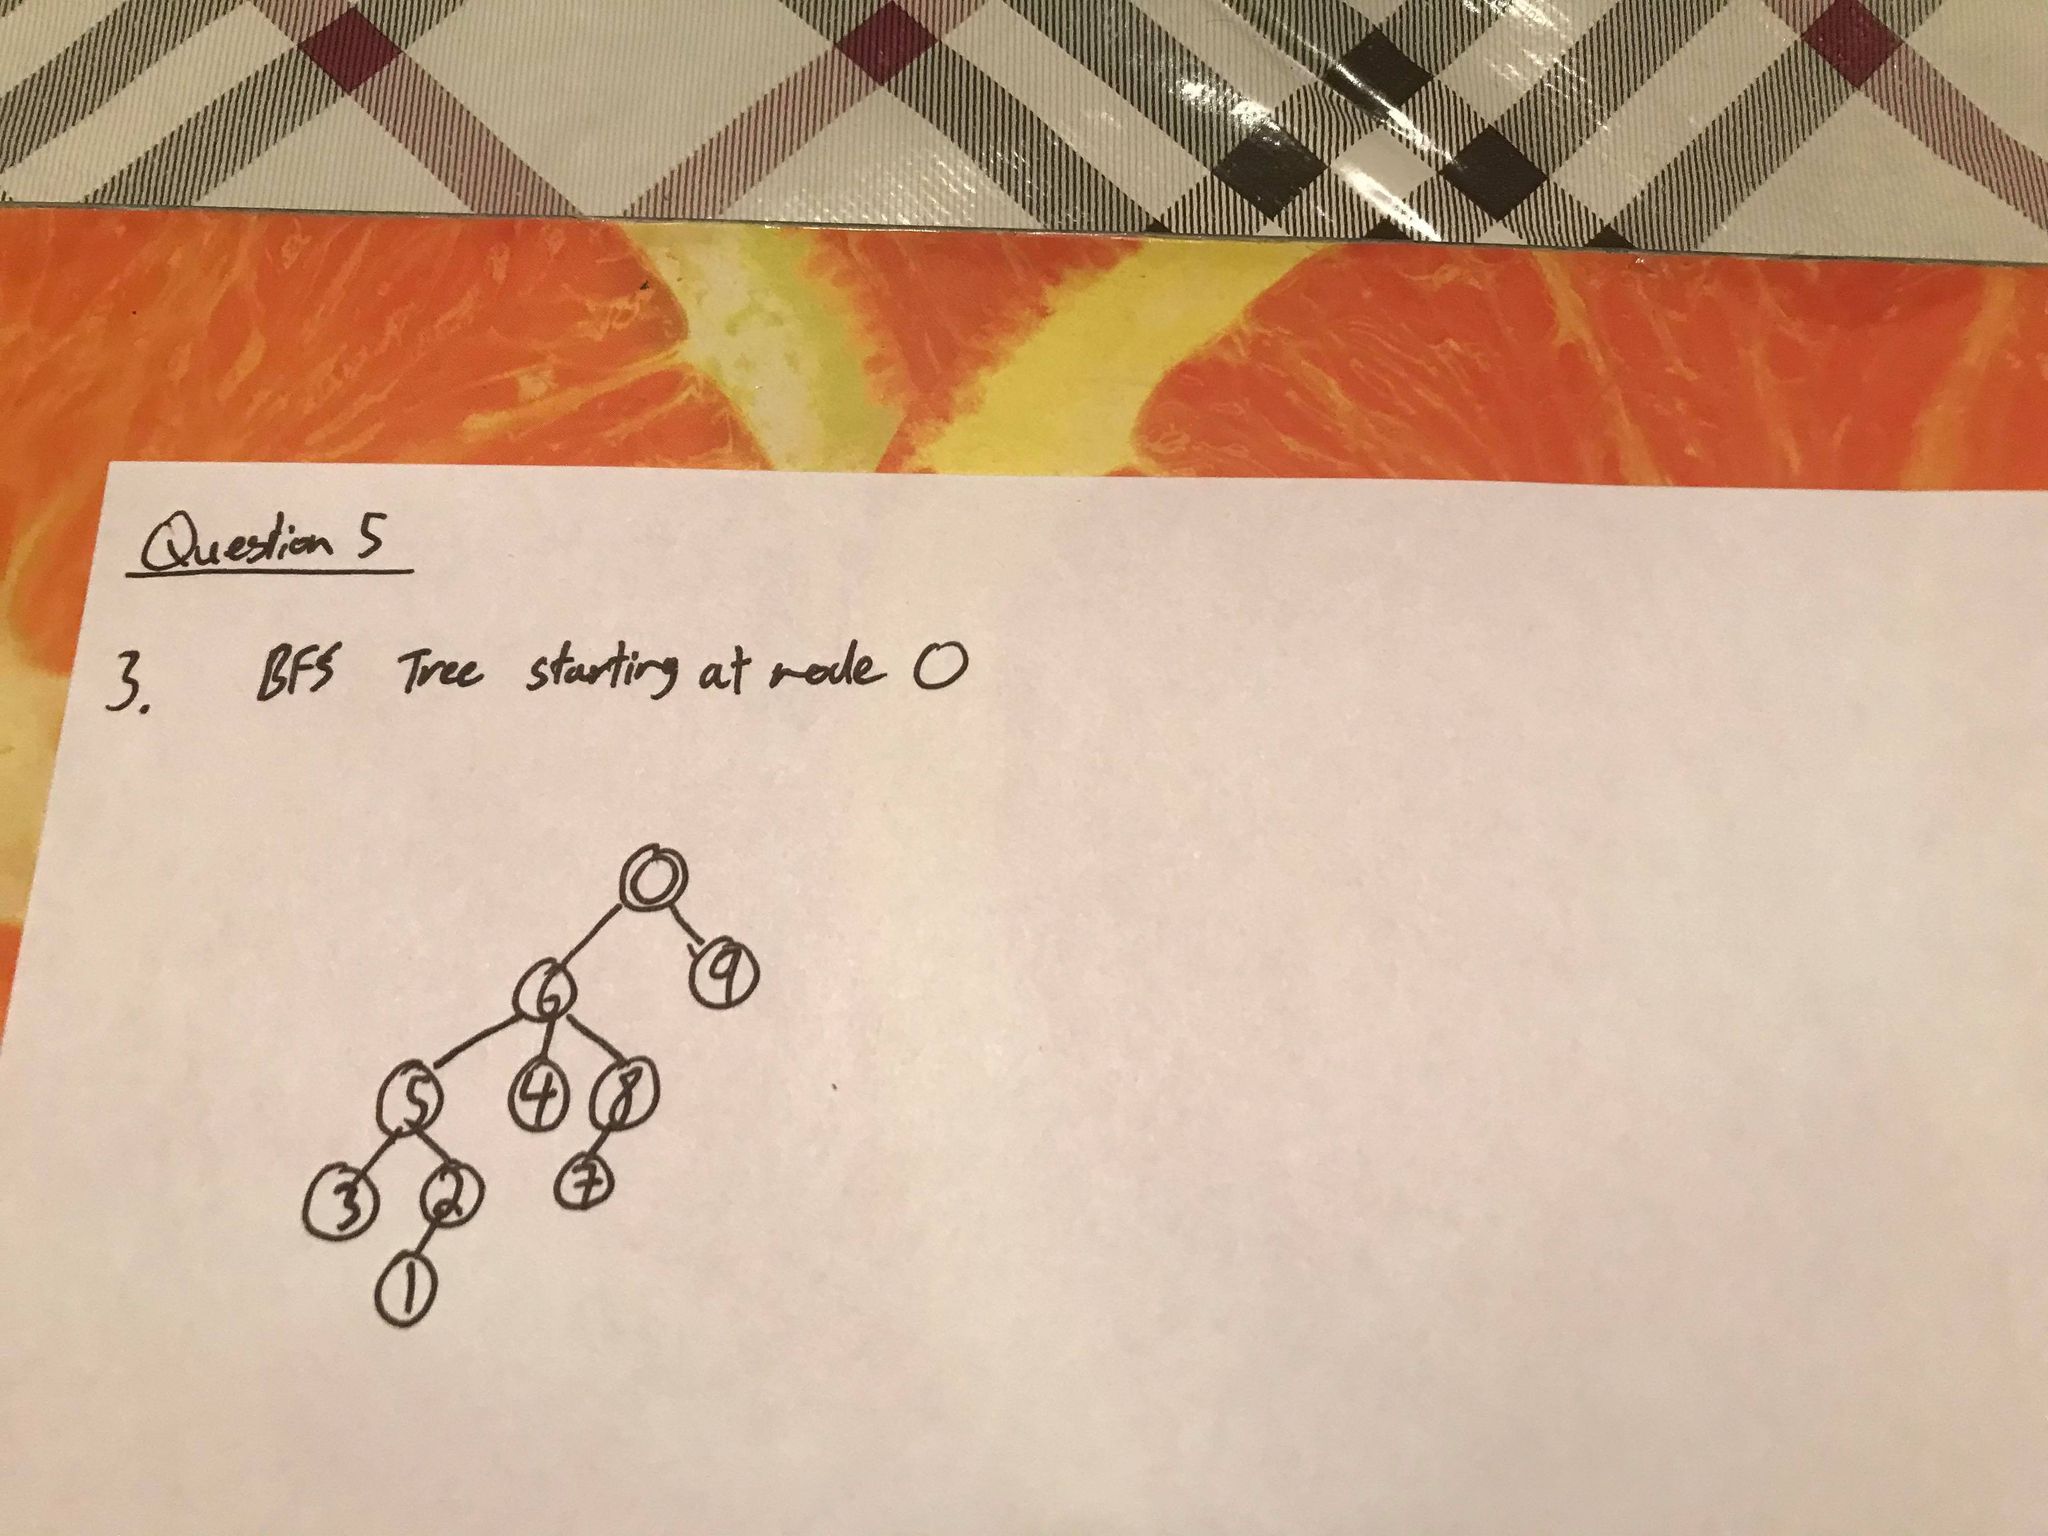 Question 5
3. BFS Tree starting at node 0
0
6 9
5 4 8
3 2 7
1